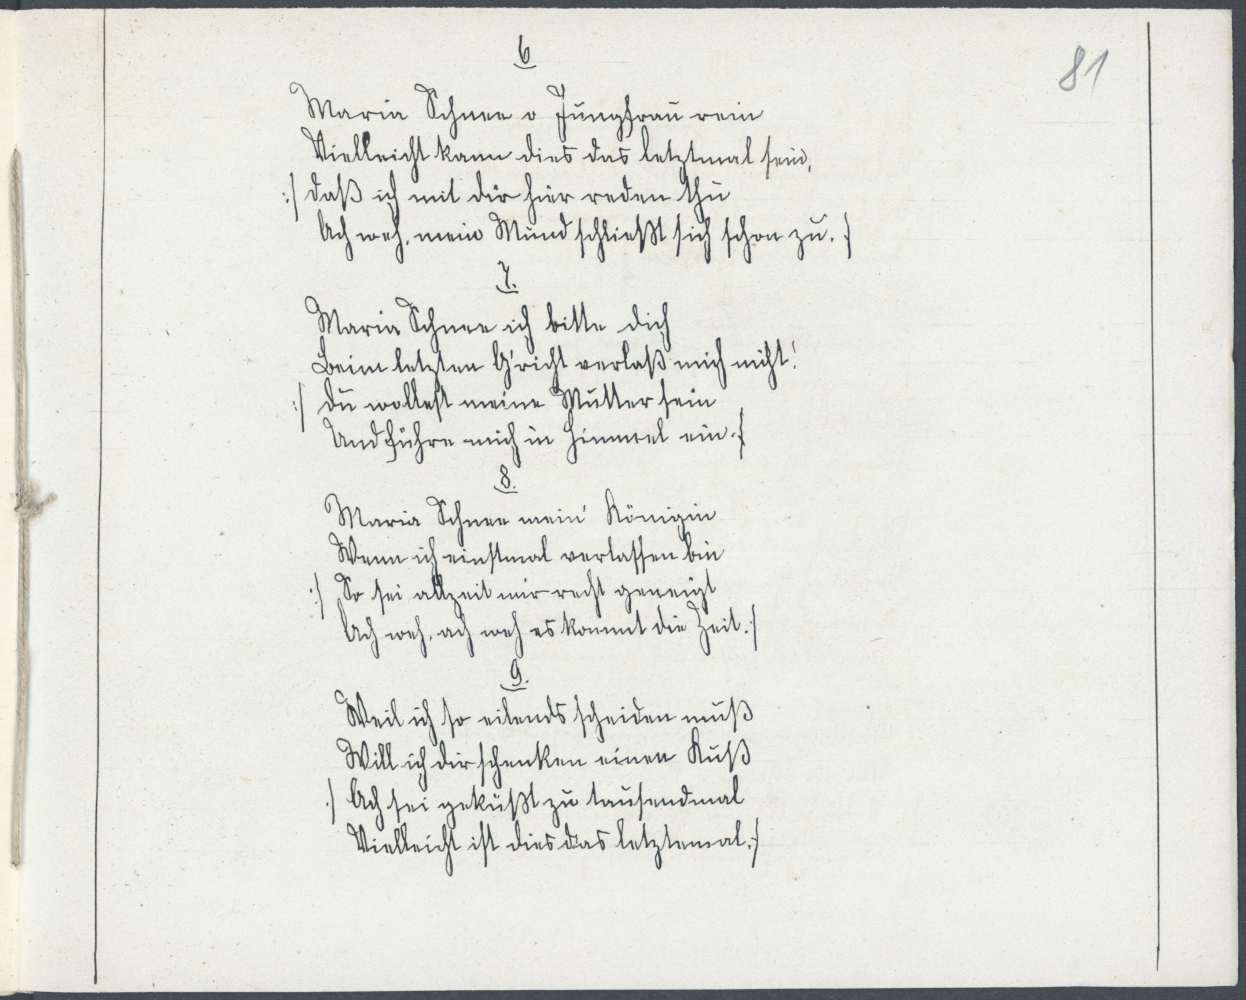 81
6
Maria Schnee o Jungfrau rein
Vielleicht kann dies das letztmal sein,
:/ daß ich mit dir hier reden thu
Ach weh, mein Mund schließt sich schon zu. :/
7.
Maria Schnee ich bitte dich
Beim letzten G'richt verlaß mich nicht!
:/ du wollest meine Mutter sein
Und führe mich in Himmel ein :/
8.
Maria Schnee mein' Königin
Wenn ich einstmal verlassen bin
:/ So sei allzeit mir recht geneigt
Ach weh, ach weh es kommt die Zeit. :/
9.
Weil ich so eilends scheiden muß
Will ich dir schenken einen Kuß
:/ Ach sei geküßt zu tausendmal
Vielleicht ist dies das letztemal. :/